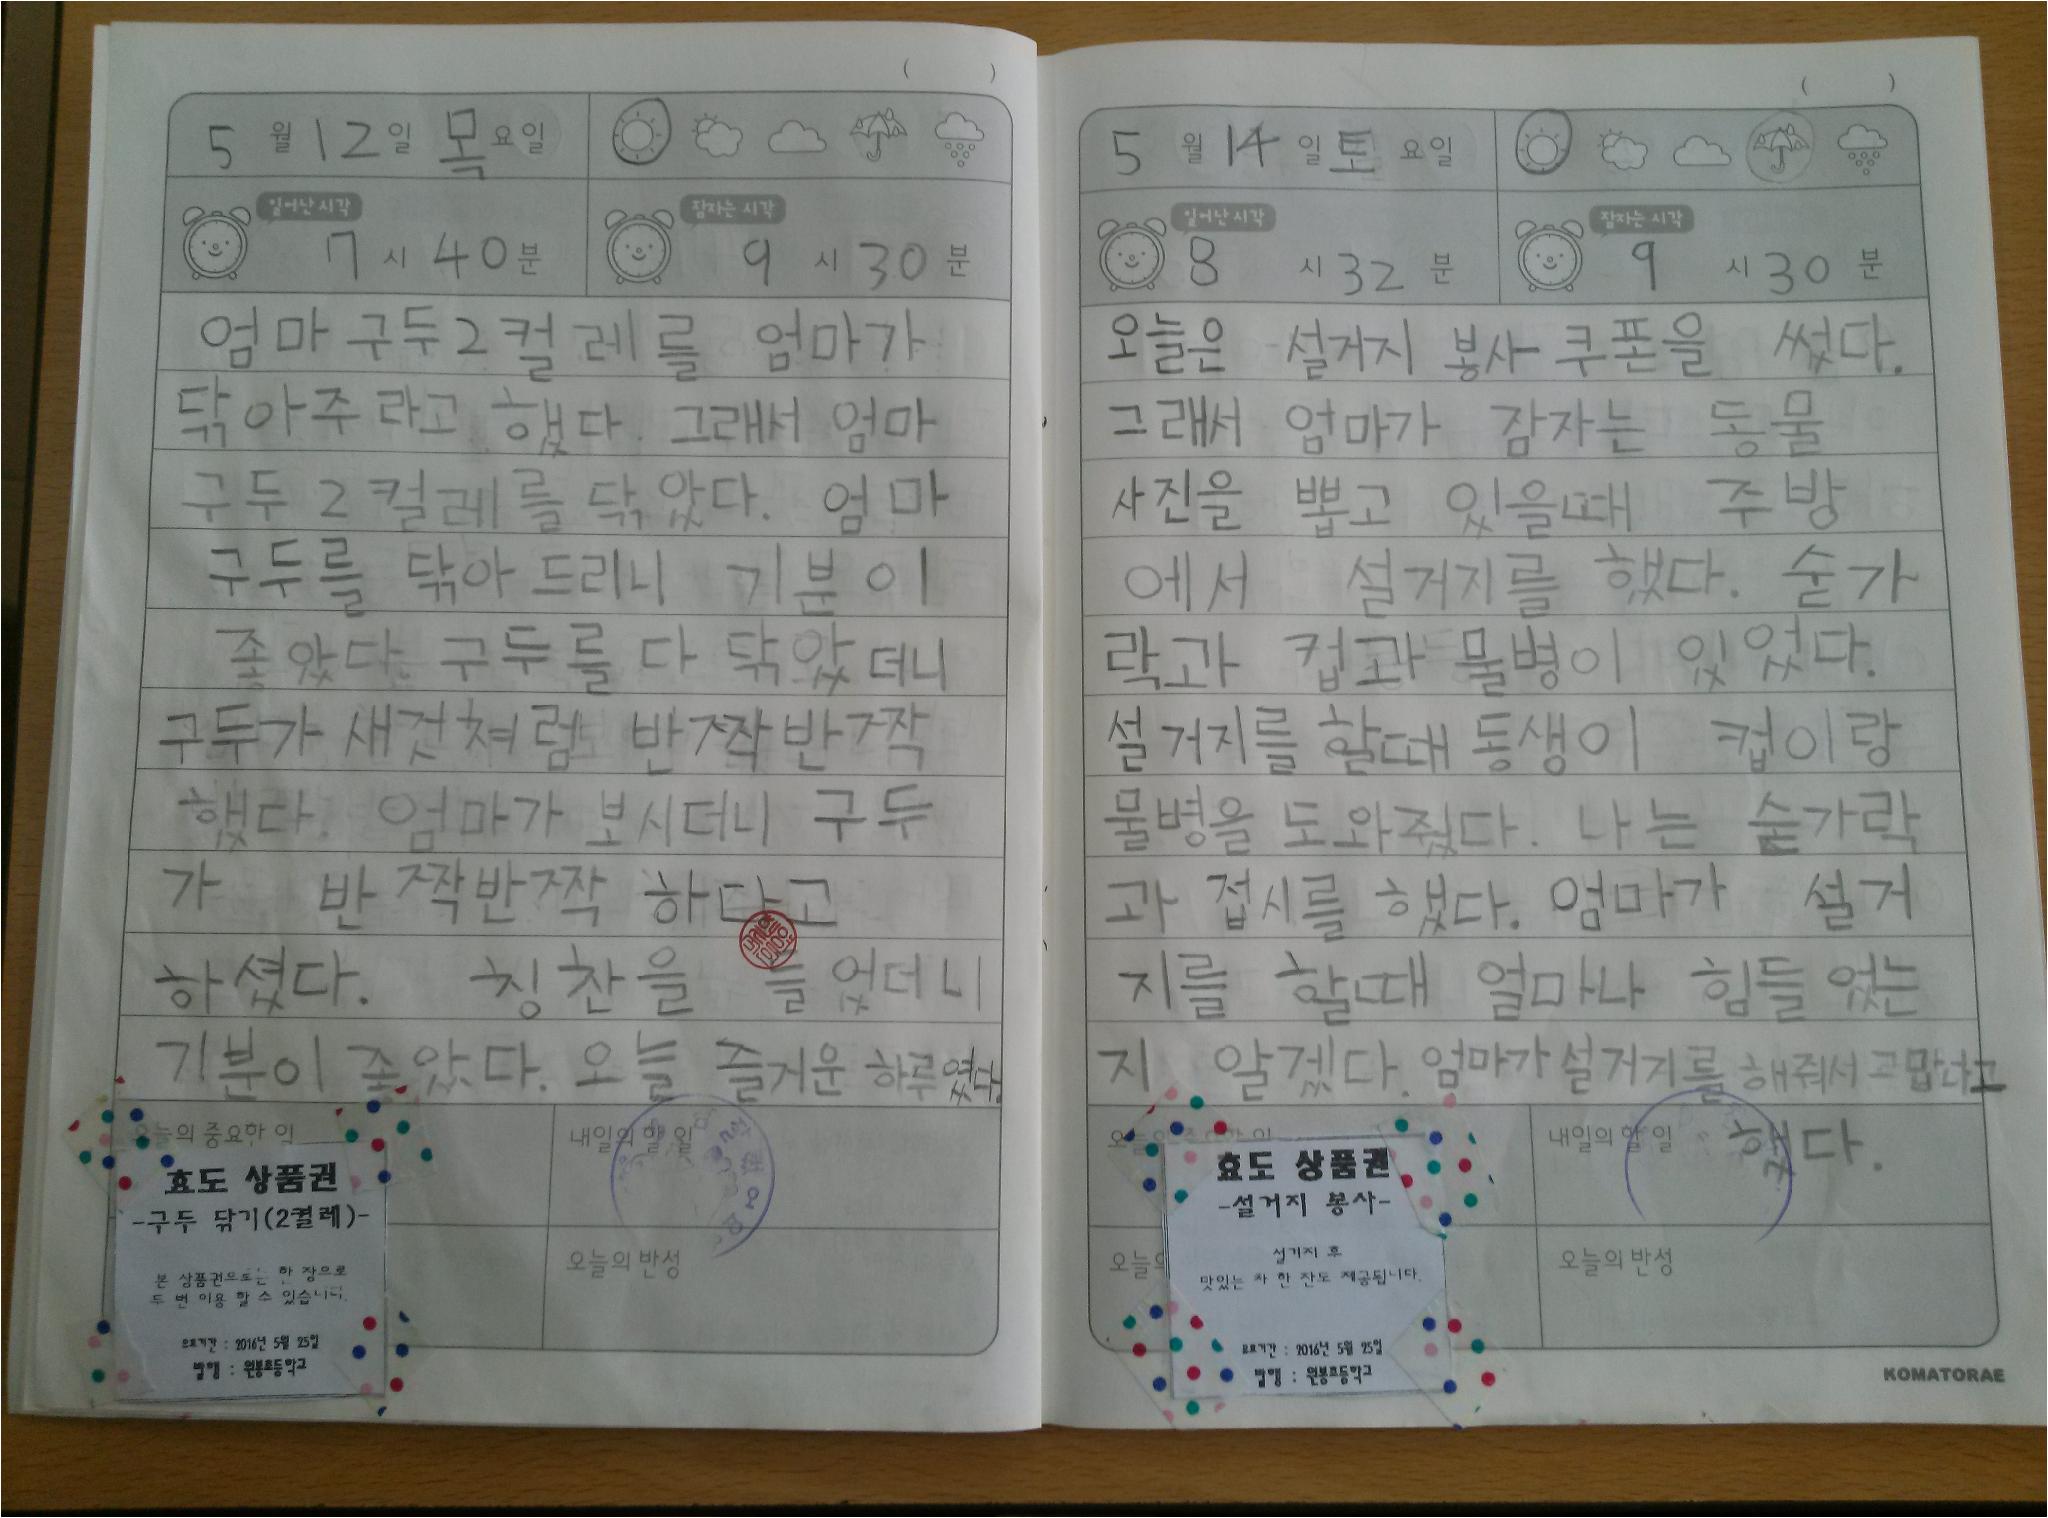 (          )
5 월 12 일 목 요일
일어난 시각
7 시 40 분
잠자는 시각
9 시 30 분
엄마 구두 2 컬레를 엄마가
닦아주라고 했다. 그래서 엄마
구두 2 컬레를 닦았다. 엄마
구두를 닦아 드리니 기분이
좋았다. 구두를 다 닦았더니
구두가 새것쳐럼 반짝반짝
했다. 엄마가 보시더니 구두
가 반짝반짝 하다고
하셨다. 칭찬을 들었더니
기분이 좋았다. 오늘 즐거운 하루였다.
오늘의 중요한 일
내일의 할 일
오늘의 반성
효도 상품권
-구두 닦기(2켤레)-
본 상품권으로는 한 장으로
두 번 이용 할 수 있습니다.
유효기간 : 2016년 5월 25일
발행 : 원봉초등학교
(          )
5 월 14 일 토 요일
일어난 시각
8 시 32 분
잠자는 시각
9 시 30 분
오늘은 설거지 봉사 쿠폰을 썼다.
그래서 엄마가 잠자는 동물
사진을 뽑고 있을때 주방
에서 설거지를 했다. 숟가
락과 컵과 물병이 있었다.
설거지를 할때 동생이 컵이랑
물병을 도와줬다. 나는 숟가락
과 접시를 했다. 엄마가 설거
지를 할때 얼마나 힘들었는
지 알겠다. 엄마가 설거지를 해줘서 고맙다고
했다.
내일의 할 일
오늘의 반성
효도 상품권
-설거지 봉사-
설거지 후
맛있는 차 한 잔도 제공됩니다.
유효기간 : 2016년 5월 25일
발행 : 원봉초등학교
KOMATORAE